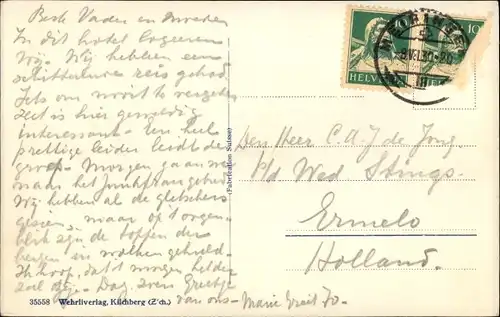 Beste Vader en Moeder
In dit hotel logeeren
wij. Wij hebben een
schitterende reis gehad.
Iets om nooit te vergeten
zeer is hier geweldig
interessant. Een heel
prettige leider leidt de
groep. Morgen gaan we
naar het Jungfraugebied
Wij hebben al de gletschers
gezien, maar op 't oogen-
blik zijn de toppen der
bergen in wolken gehuld.
Ik hoop, dat 't morgen helder
zal zijn. Dag, veel groetjes
van ons - Marie
(Fabrication Suisse)
35558 Wehrliverlag, Kilchberg (Z'ch.)
HELVETIA
10
Den Heer C. A. J. de Jong.
p/a Wed Stings-
Ermelo
Holland.